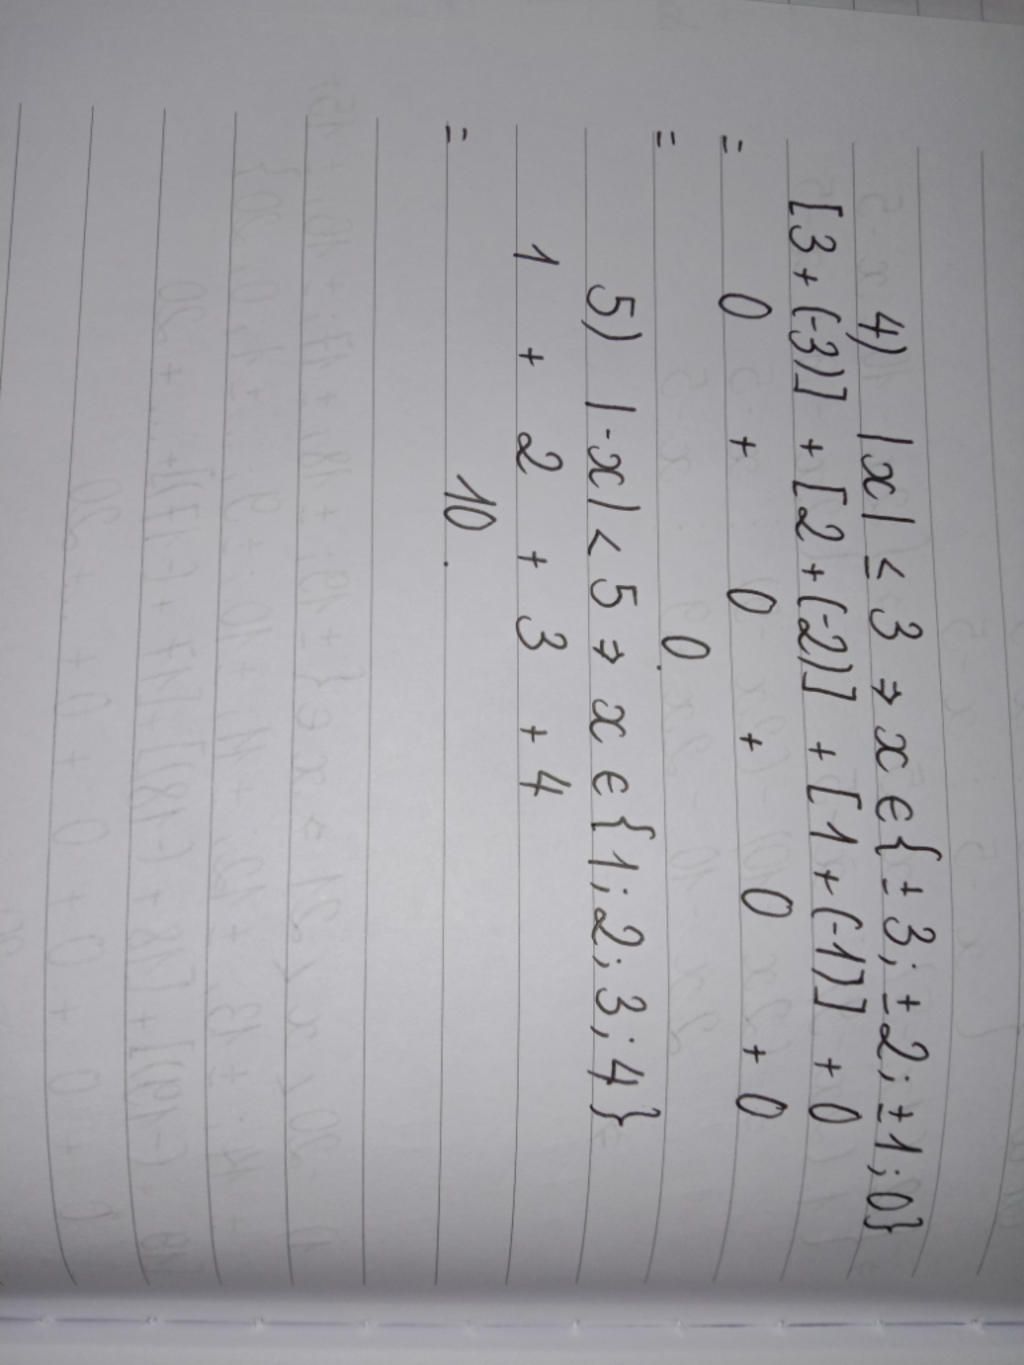 4) |x| ≤ 3 ⇒ x ∈ {± 3; ± 2; ± 1; 0}
[3 + (-3)] + [2 + (-2)] + [1 + (-1)] + 0
= 0 + 0 + 0 + 0
= 0.
5) |-x| < 5 ⇒ x ∈ {1; 2; 3; 4}
1 + 2 + 3 + 4
= 10.